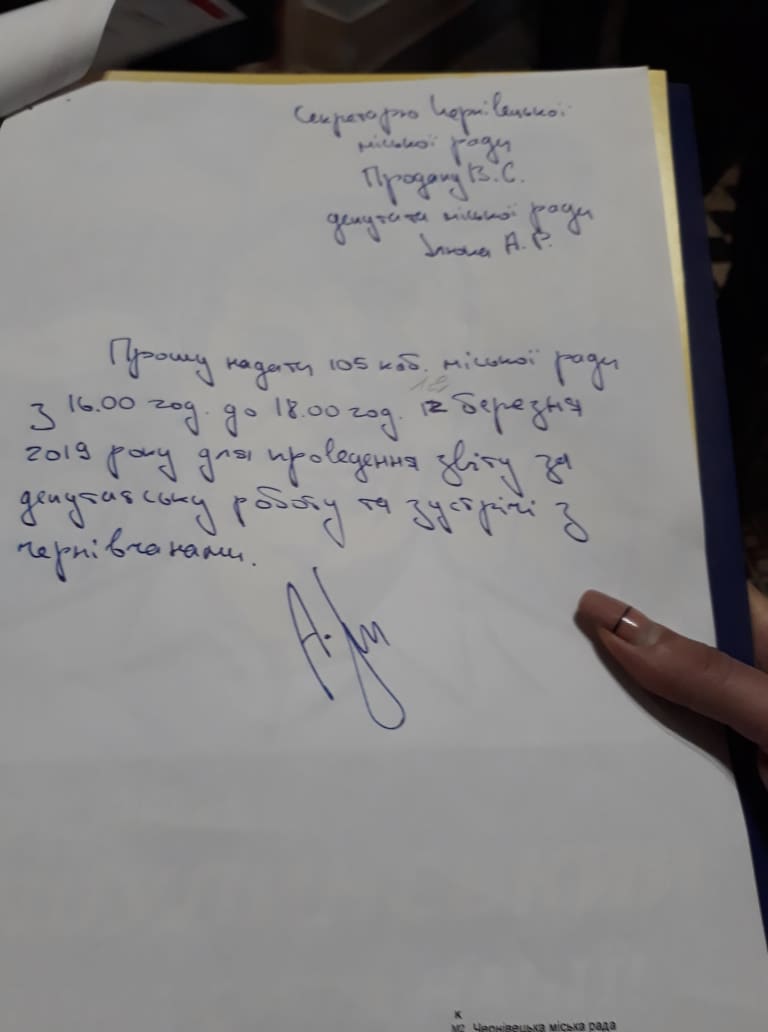 Секретарю Чернівецької
міської ради
Продану В.С.
депутата міської ради
А.Р.
Прошу надати 105 каб. міської ради
з 16.00 год. до 18.00 год. 12 березня
2019 року для проведення звіту за
депутатську роботу та зустрічі з
чернівчанами.
К
М2 Чернівецька міська рада